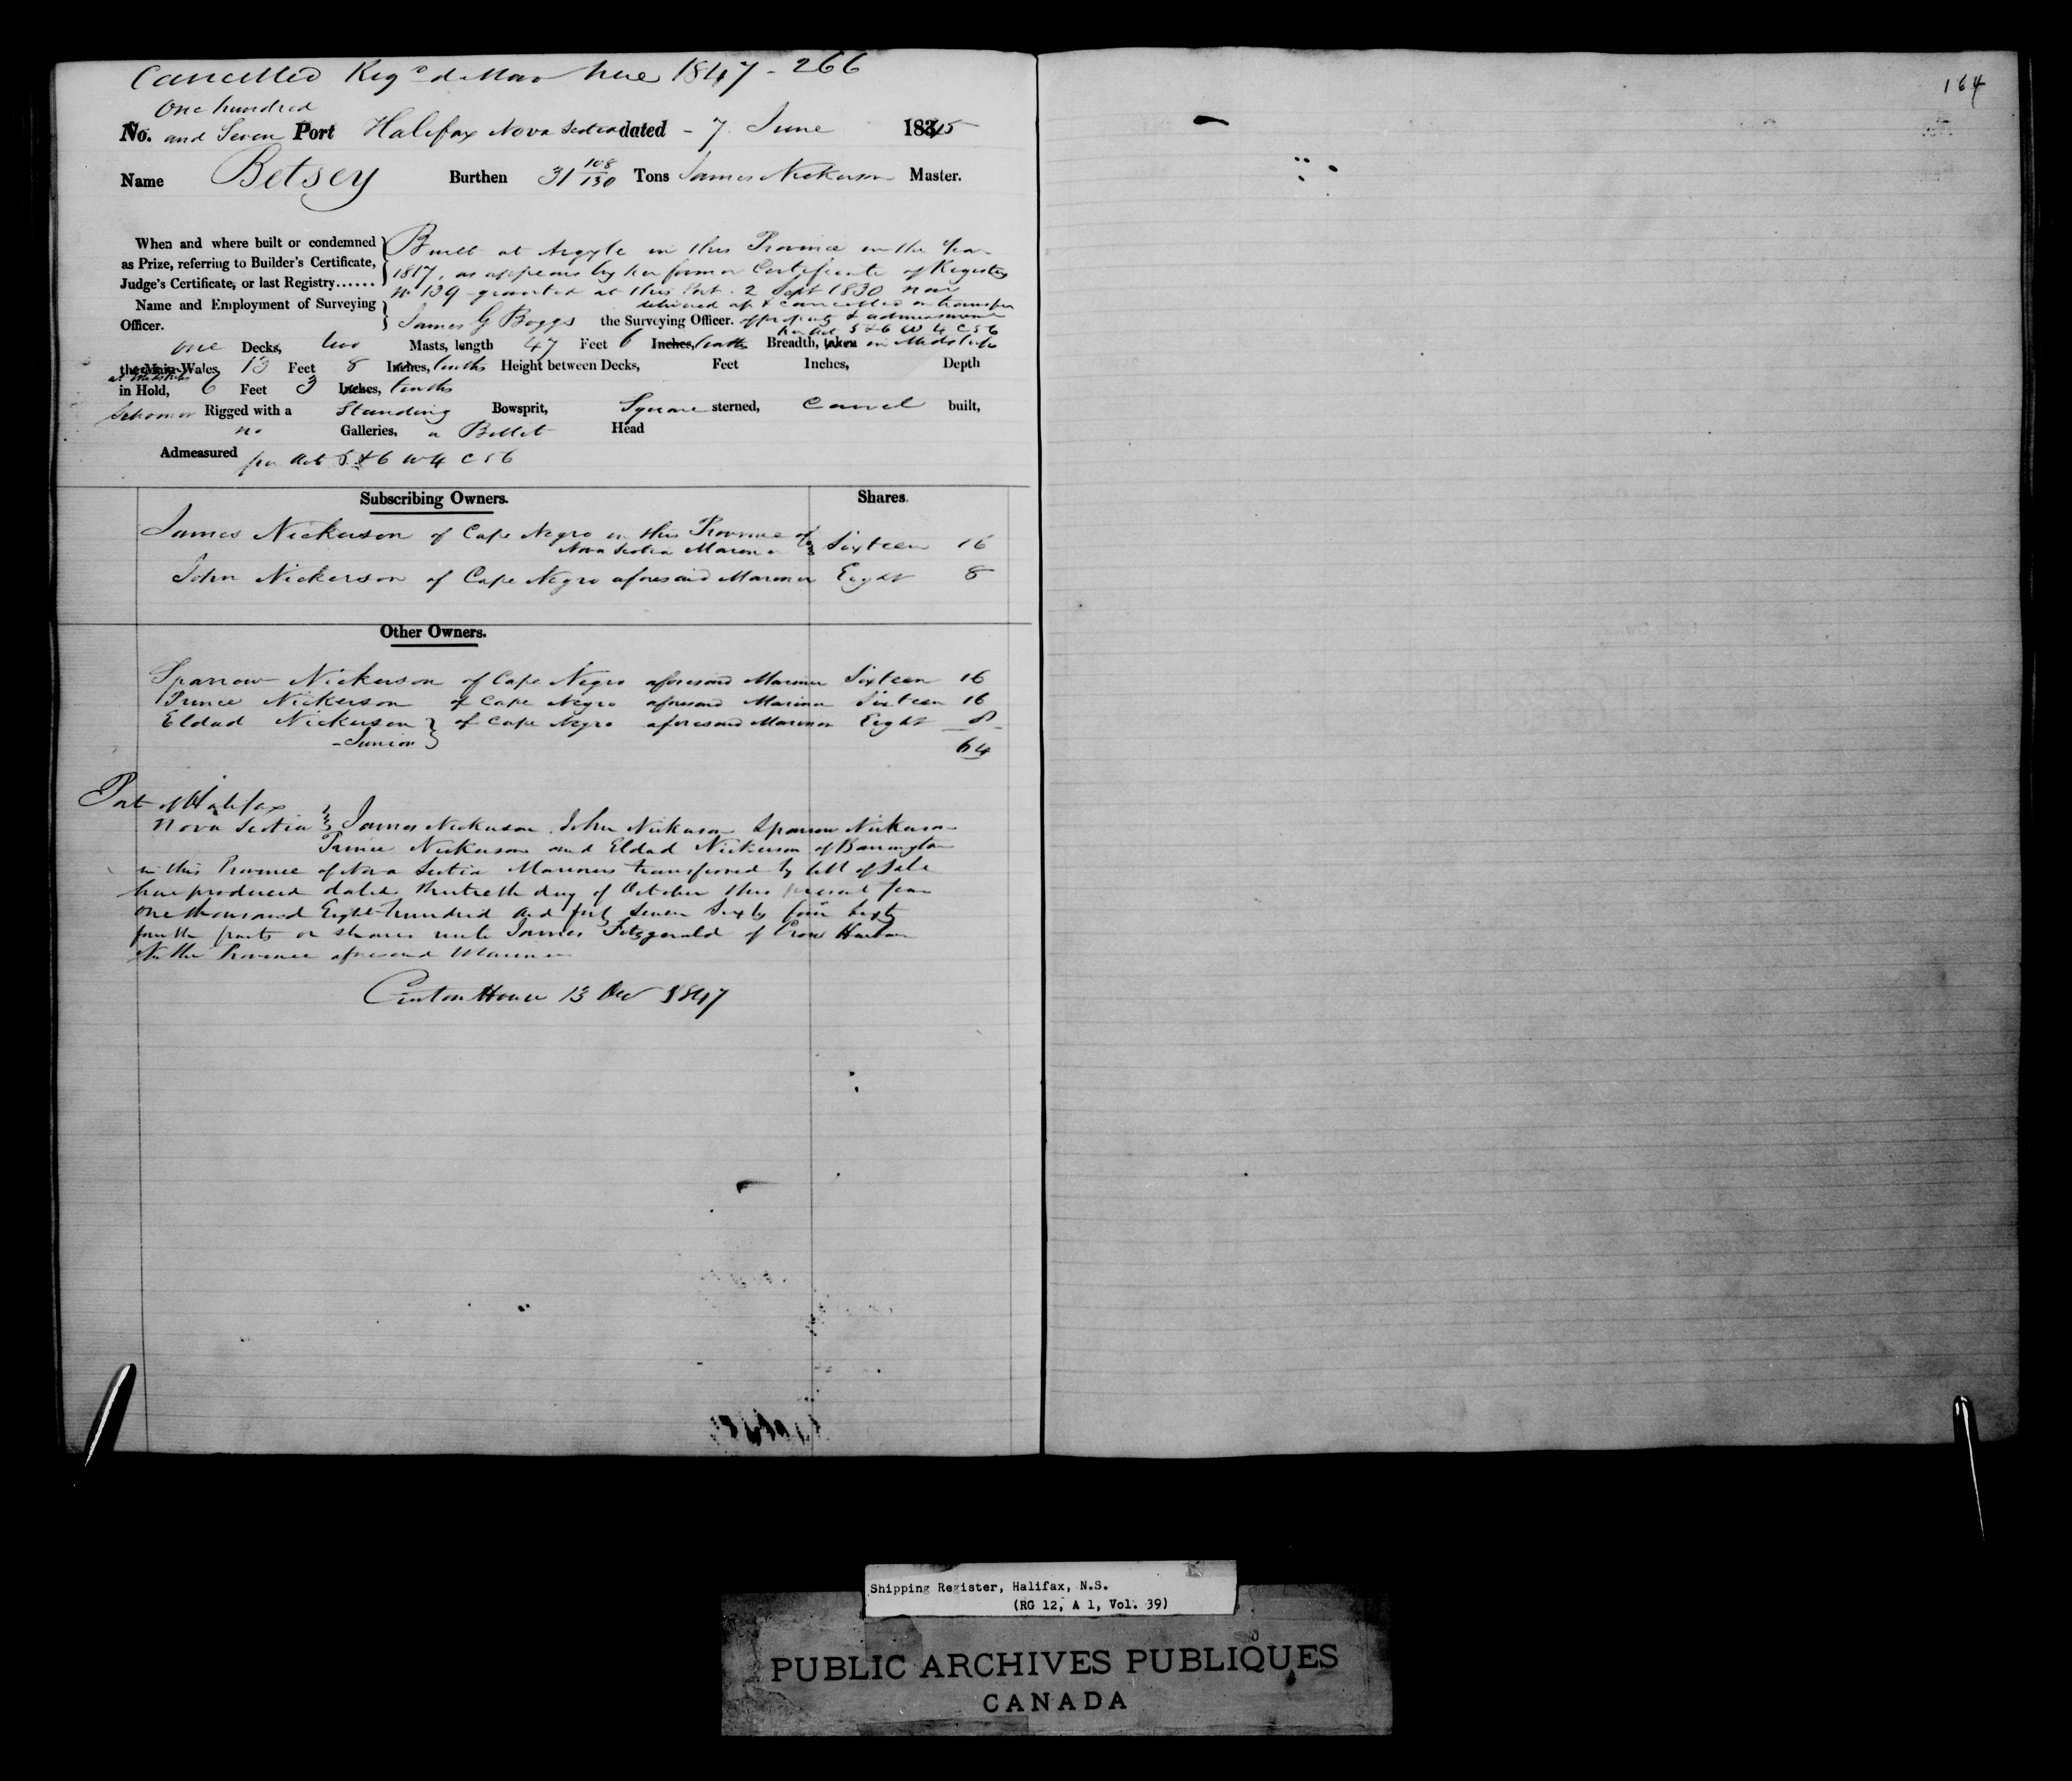 Cancelled Reg'd de Novo here 1847 - 266
164
One hundred
No. and Seven Port Halifax Nova Scotia dated - 7 June 1845
Name Betsey Burthen 31 108/130 Tons James Nickerson Master.
When and where built or condemned Built at Argyle in this Province in the Year
as Prize, referring to Builder's Certificate, 1817, as appears by her former Certificate of Registry
Judge's Certificate, or last Registry...... No 139 granted at this Port 2 Sept 1830 now
Name and Employment of Surveying delivered up & cancelled on transfer
Officer. James G Boggs the Surveying Officer. of property & admeasurement
per Act 5 & 6 W 4 C 56
one Decks, two Masts, length 47 Feet 6 Inches, tenths Breadth, taken in Midships
the Main Wales, 13 Feet 8 Inches, tenths Height between Decks, Feet Inches, Depth
at Midships
in Hold, 6 Feet 3 Inches, tenths
Schooner Rigged with a Standing Bowsprit, Square sterned, Carvel built,
no Galleries, a Billet Head
Admeasured per Act 5 & 6 W 4 C 56
Subscribing Owners. Shares.
James Nickerson of Cape Negro in this Province of
Nova Scotia Mariner Sixteen 16
John Nickerson of Cape Negro aforesaid Mariner Eight 8
Other Owners.
Sparrow Nickerson of Cape Negro aforesaid Mariner Sixteen 16
Prince Nickerson of Cape Negro aforesaid Mariner Sixteen 16
Eldad Nickerson of Cape Negro aforesaid Mariner Eight 8
- Junior
64
Port of Halifax
Nova Scotia James Nickerson, John Nickerson Sparrow Nickerson
Prince Nickerson and Eldad Nickerson of Barrington
in this Province of Nova Scotia Mariners transferred by bill of Sale
here produced dated thirtieth day of October this present year
one thousand Eight hundred and forty Seven Sixty four Sixty
fourth parts or shares unto James Fitzgerald of Crow Harbour
in the Province aforesaid Mariner
Custom House 13 Dec 1847
Shipping Register, Halifax, N.S.
(RG 12, A 1, Vol. 39)
PUBLIC ARCHIVES PUBLIQUES
CANADA